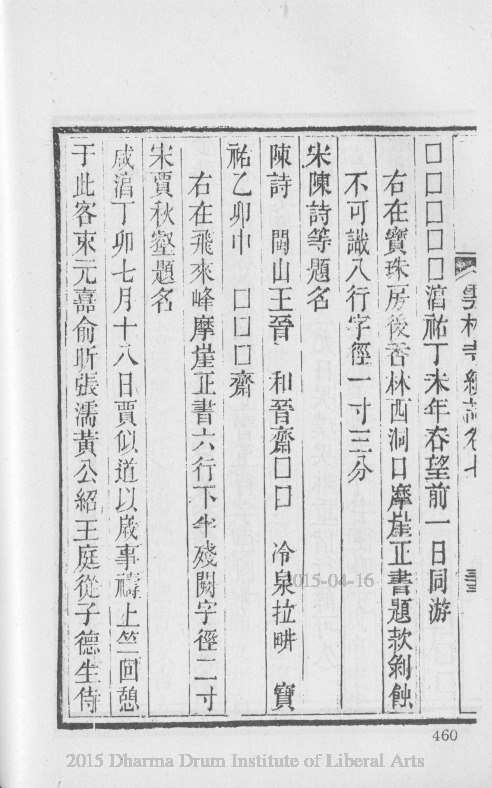 雲林寺續志卷七
□□□□□湻祐丁未年春望前一日同游
右在寶珠房後香林西洞口摩崖正書題款剝蝕
不可識八行字徑一寸三分
宋陳詩等題名
陳詩 閩山王晉 和晉齋□□ 冷泉拉畊 寶
祐乙卯中 □□□齋
右在飛來峰摩崖正書六行下半殘闕字徑二寸
宋賈秋壑題名
咸湻丁卯七月十八日賈似道以歲事禱上竺回憩
于此客束元嘉俞昕張濡黃公紹王庭從子德生侍
460
2015-04-16
2015 Dharma Drum Institute of Liberal Arts